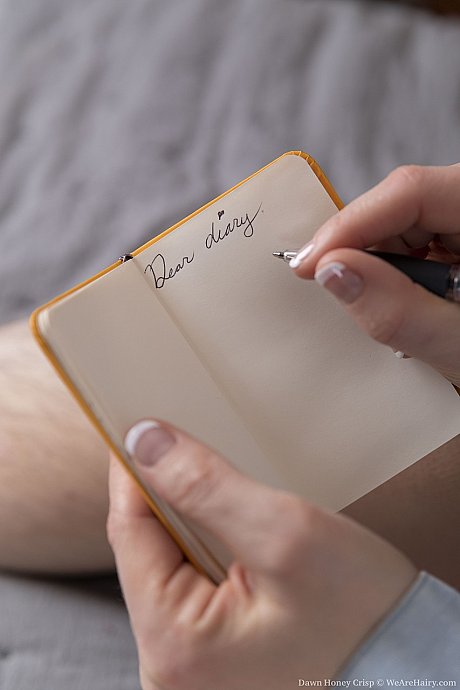 Dear diary.
Dawn Honey Crisp © WeAreHairy.com